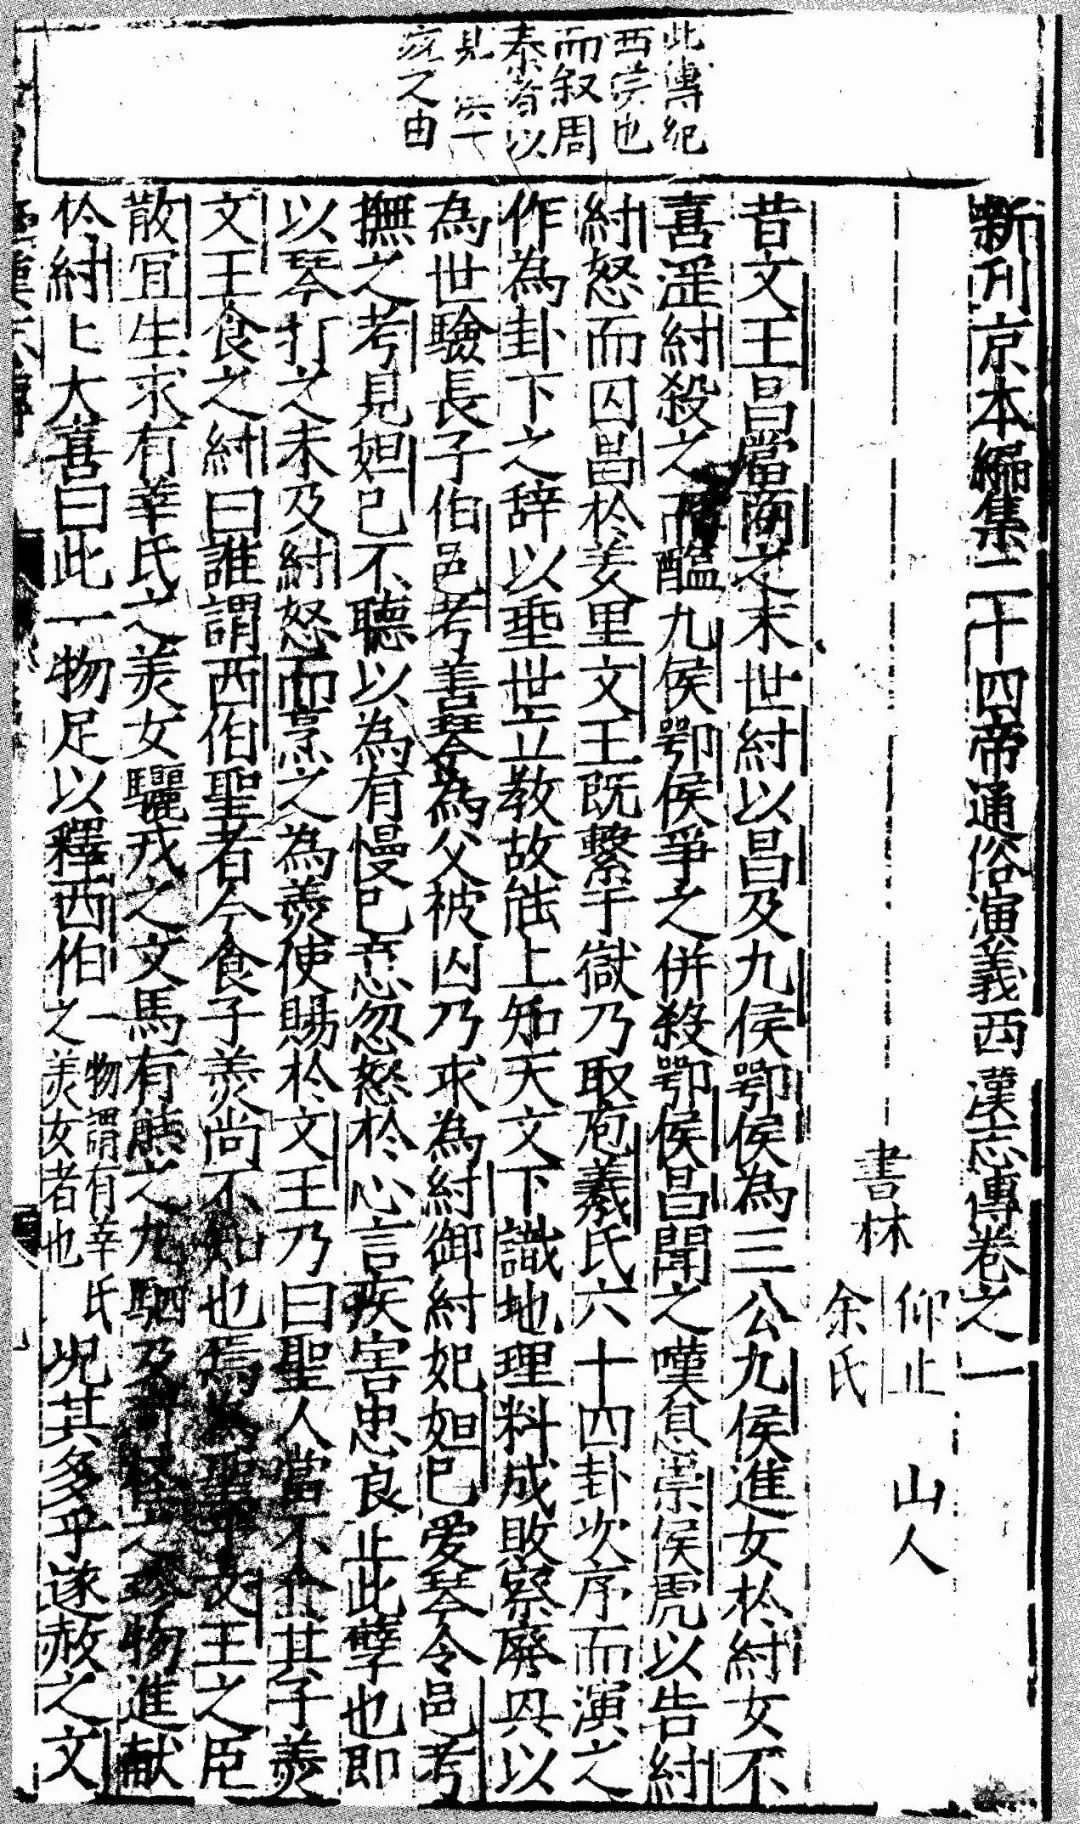 此傳紀
西漢也
而叙周
秦者以
見 
之由
新刊京本編集二十四帝通俗演義西漢志傳卷之一
書林
仰止 山人
余氏
昔文王昌當商之末世紂以昌及九侯鄂侯為三公九侯進女於紂女不
喜淫紂殺之而醢九侯鄂侯爭之併殺鄂侯昌聞之嘆息崇侯虎以告紂
紂怒而囚昌於羑里文王既繫于獄乃取庖羲氏六十四卦次序而演之
作為卦下之辞以垂世立教故能上知天文下識地理料成敗察廢興以
為世驗長子伯邑考善琴為父被囚乃求為紂御紂妃妲己愛琴令邑考
撫之考見妲己不聽以為有慢己意忽怒於心言疾害忠良止此孽也即
以琴打之未及紂怒而烹之為羹使賜於文王乃曰聖人當不食其子羹
文王食之紂曰誰謂西伯聖者今食子羹尚不知也焉為聖乎文王之臣
散宜生求有莘氏之美女驪戎之文馬有熊之九駟及奇怪之珍物進献
於紂上大喜曰此一物足以釋西伯之一物謂有莘氏美女者也况其多乎遂赦之文